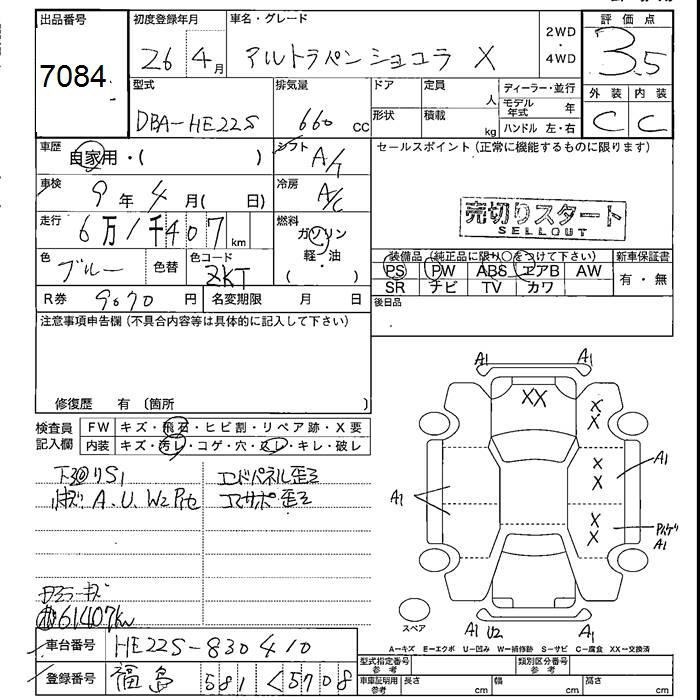 出品番号
7084
初度登録年月
26 4月
車名・グレード
アルトラパンショコラ X
2WD
・
4WD
評価点
3.5
型式
DBA-HE22S
排気量
660 cc
ドア
定員
人
形状
積載
kg
ディーラー・並行
モデル年式 年
ハンドル 左・右
外装
C
内装
C
車歴
自家用・( )
シフト
A/T
セールスポイント(正常に機能するものに限ります)
車検
9年4月( 日)
冷房
A/C
売切りスタート
SELLOUT
走行
6万1千407km
燃料
ガソリン
軽・油
( )
色
ブルー
色替
色コード
ZKT
装備品(純正品に限り○をつけて下さい)
PS PW ABS エアB AW
SR ナビ TV カワ
新車保証書
有・無
R券 9070円
名変期限 月 日
後日品
注意事項申告欄(不具合内容等は具体的に記入して下さい)
修復歴 有 〔箇所 〕
検査員記入欄
FW キズ・飛石・ヒビ割・リペア跡・X要
内装 キズ・汚レ・コゲ・穴・スレ・キレ・破レ
A.U.W2
エンドパネル歪ミ
コアサポ歪ミ
61407km
A1
A1
XX
XX
XX
XX
A1
A1
A1
スペア
A1 U2
A1
A=キズ E=エクボ U=凹み W=補修跡 S=サビ C=腐食 XX=交換済
車台番号
HE22S-830410
型式指定番号 参考
類別区分番号 参考
登録番号
福島 581 く5708
車庫証明用 参考
長さ cm
幅 cm
高さ cm